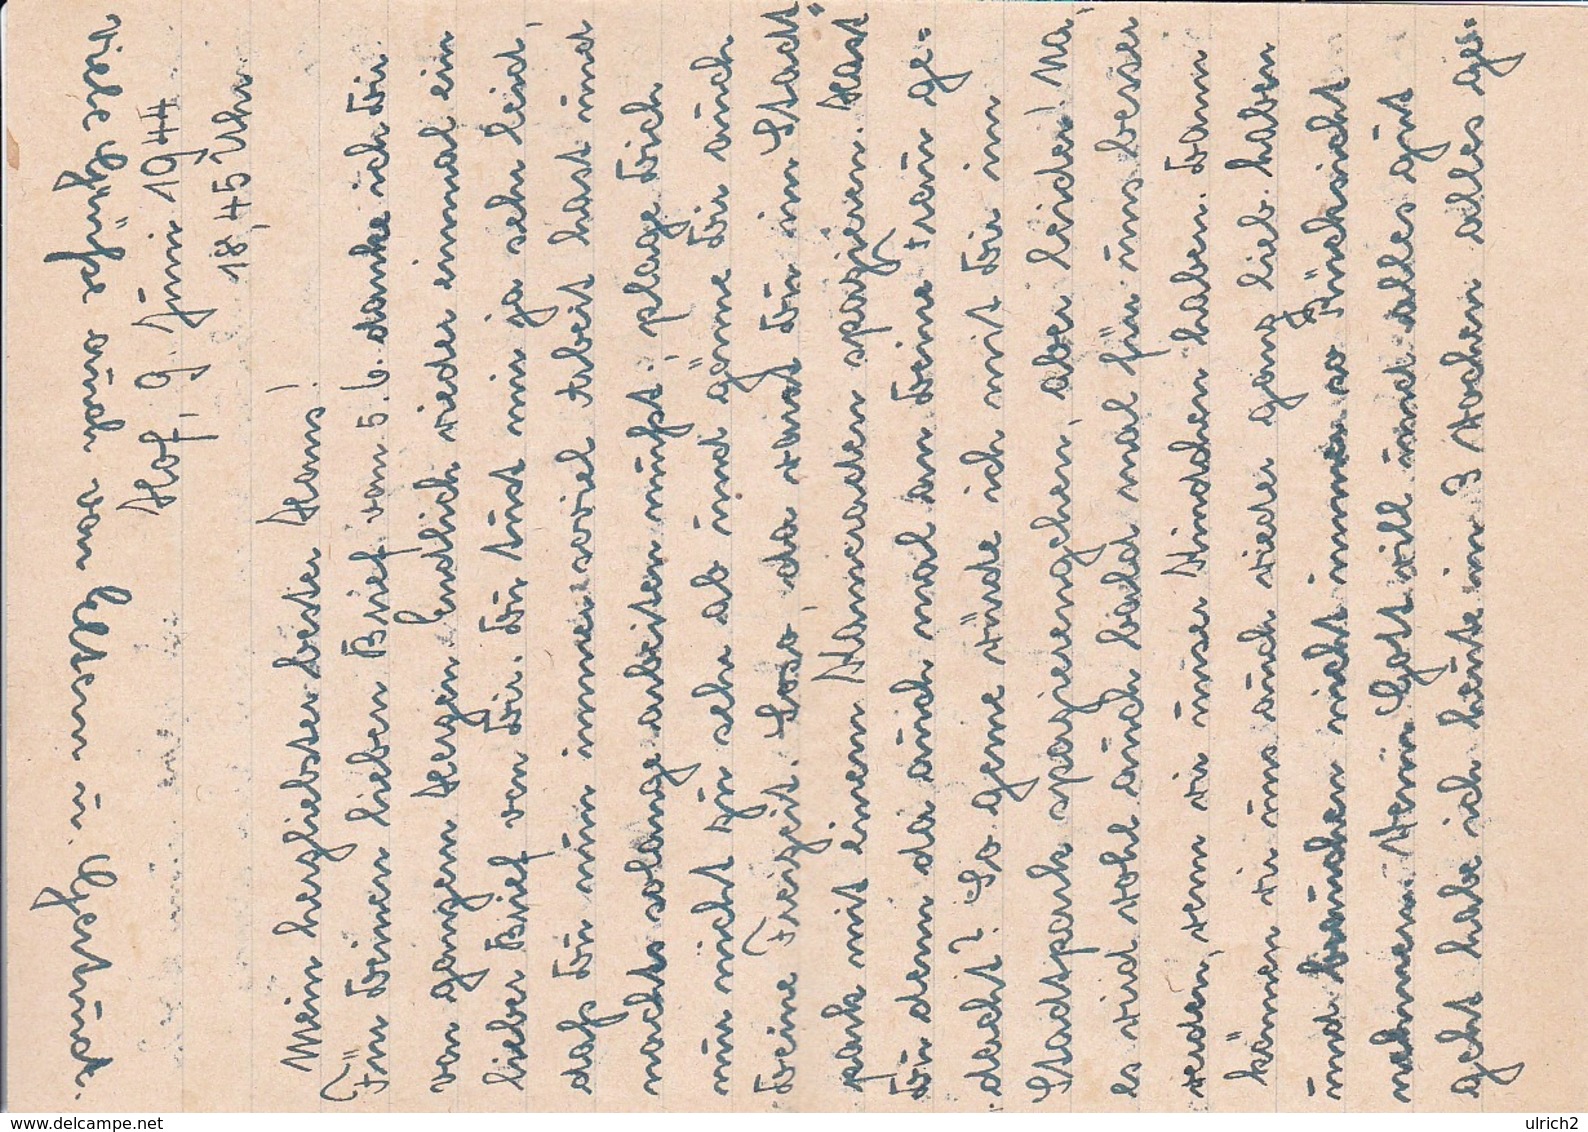 viele Grüße auch von Eltern u. Gertrud.
Hof, 9. Juni 1944
18,45 Uhr.
Mein herzliebster bester Hans!
Für Deinen lieben Brief vom 5.6. danke ich Dir
von ganzem Herzen. Endlich wieder einmal ein
lieber Brief von Dir. Du tust mir ja sehr leid,
daß Du nun immer soviel Arbeit hast und
nachts solange arbeiten mußt, plage Dich
nur nicht zu sehr ab und gönne Dir auch
Deine Freizeit. Soso, da warst Du im Stadt"
park mit einem Kameraden spazieren. Hast
Du denn da auch mal an Deine Frau ge=
dacht? So gerne würde ich mit Dir im
Stadtpark spazierengehen, aber leider! Na,
es wird wohl auch bald mal für uns besser
werden, wenn wir unser Kindchen haben. Dann
können wir uns auch wieder ganz lieb haben
und brauchen nicht immer so Rücksicht
nehmen. Wenn Gott will und alles gut
geht habe ich heute in 3 Wochen alles ge=
ulrich2